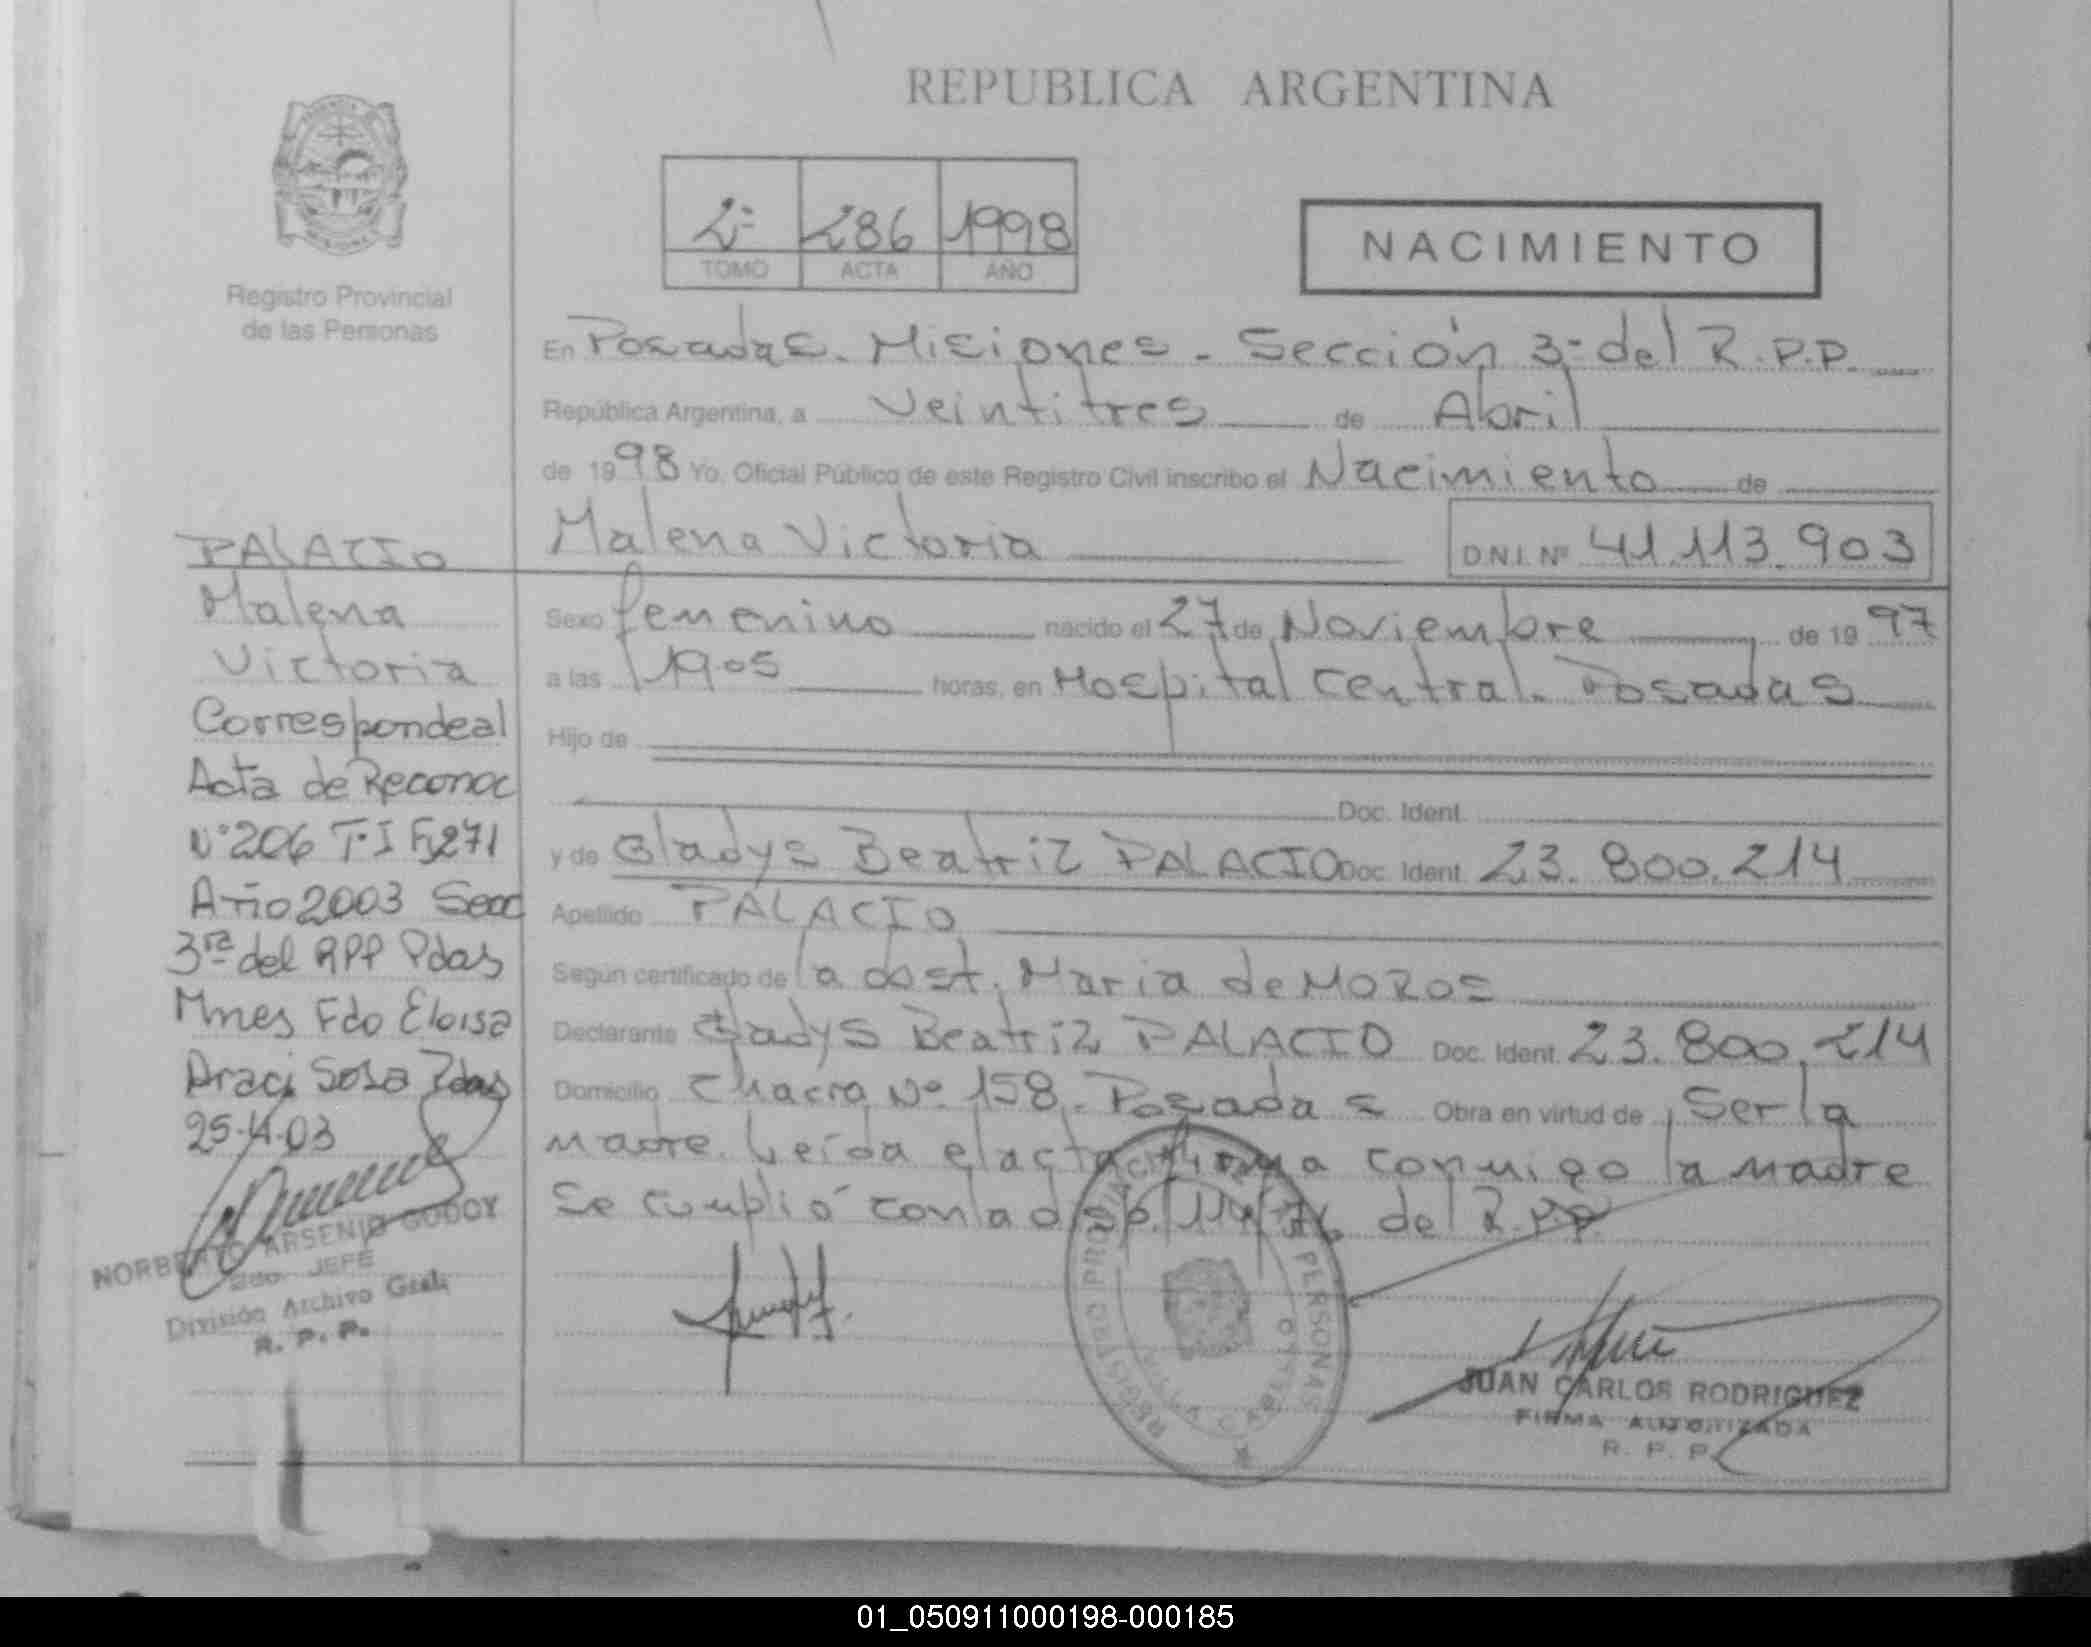 REPUBLICA ARGENTINA
Registro Provincial
de las Personas
2º 286 1998
TOMO ACTA AÑO
NACIMIENTO
En Posadas - Misiones - Sección 3º del R.P.P.
República Argentina, a Veintitres de Abril
de 1998 Yo, Oficial Público de este Registro Civil inscribo el Nacimiento de
Malena Victoria D.N.I. Nº 41.113.903
Sexo femenino nacido el 27 de Noviembre de 1997
a las 19.05 horas, en Hospital Central. Posadas
Hijo de
Doc. Ident.
y de Gladys Beatriz PALACIO Doc. Ident. 23.800.214
Apellido PALACIO
Según certificado de la obst. Maria de MOROS
Declarante Gladys Beatriz PALACIO Doc. Ident. 23.800.214
Domicilio Chacra Nº 158. Posadas Obra en virtud de Ser la
madre. Leída el acta firma conmigo la madre
Se cumplió con la del R.P.P.
PALACIO
Malena
Victoria
Corresponde al
Acta de Reconoc
Nº 206 T.I Fº271
Año 2003 Secc
3ra del RPP Pdas
Mnes Fdo Eloisa
Araci Sosa Pdas
25-4-03
NORBERTO ARSENIO GODOY
2do. JEFE
División Archivo Gral.
R. P. P.
REGISTRO PROVINCIAL DE LAS PERSONAS
JUAN CARLOS RODRIGUEZ
FIRMA AUTORIZADA
R. P. P.
01_050911000198-000185